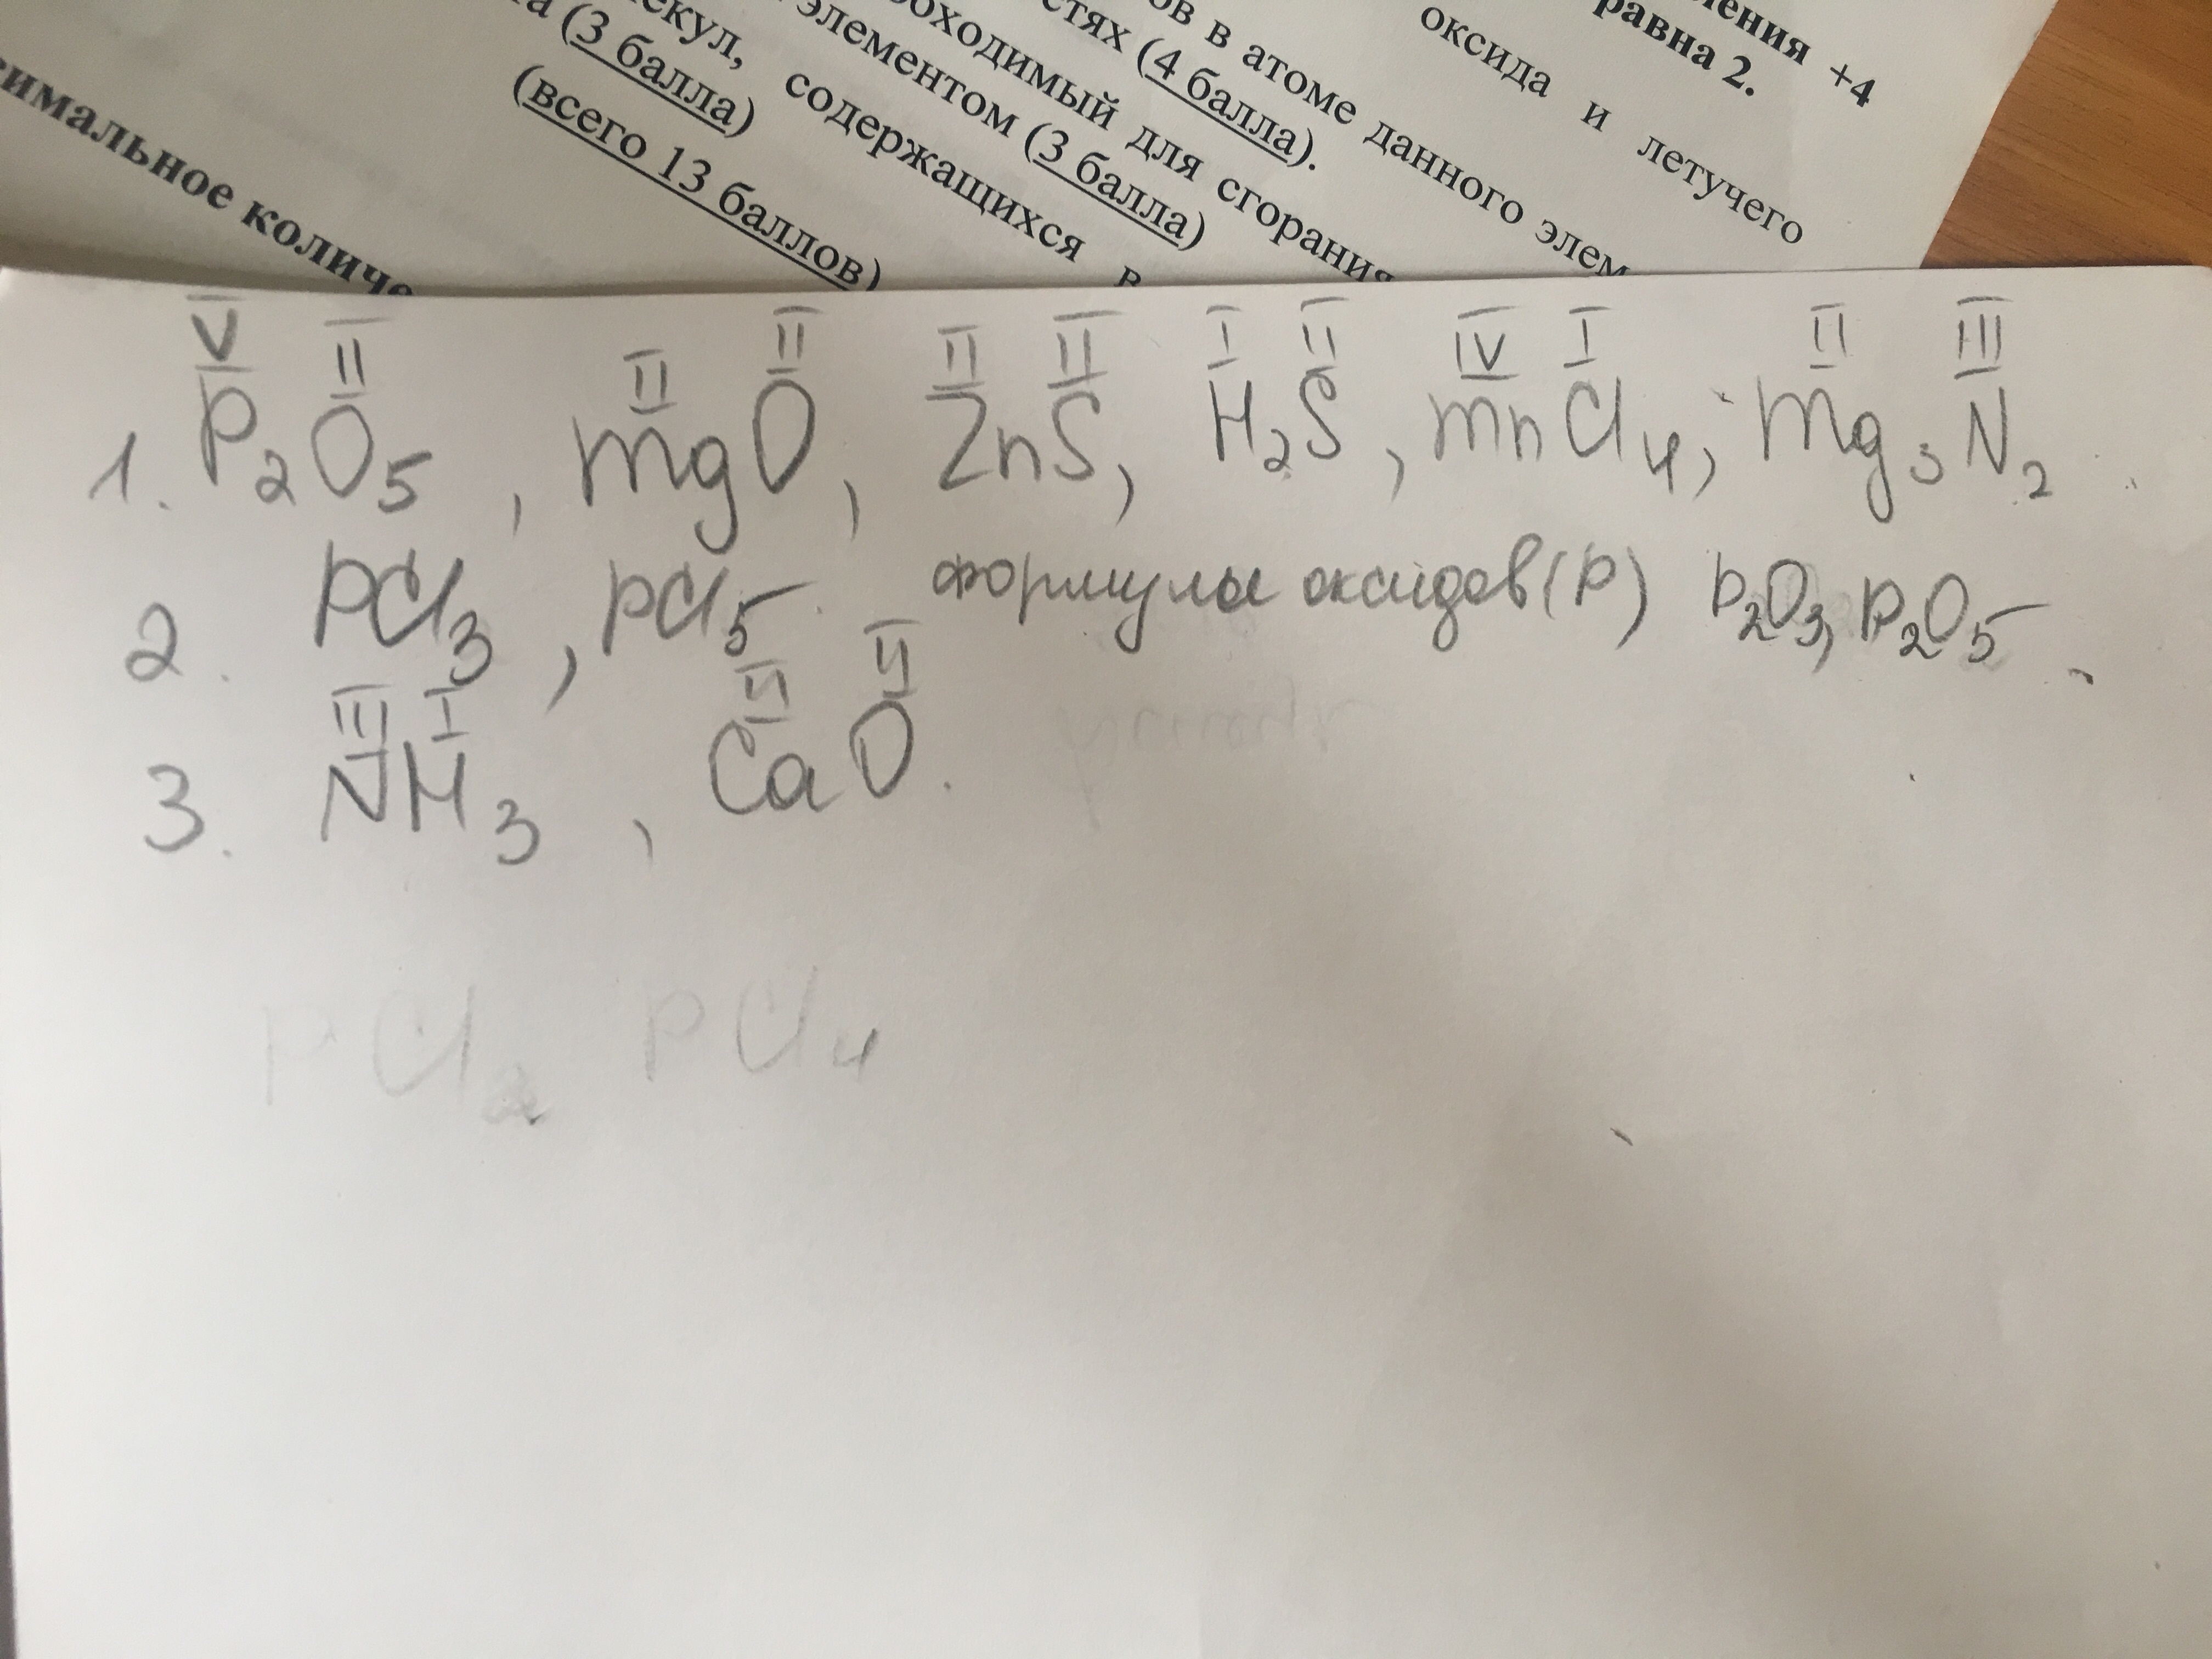 ления +4
равна 2.
оксида и летучего
ов в атоме данного элем
стях (4 балла).
оходимый для сгорания
элементом (3 балла)
екул, содержащихся в
та (3 балла)
(всего 13 баллов)
симальное количе
V II II II II II I II IV I II III
1. P2O5, MgO, ZnS, H2S, MnCl4, Mg3N2.
2. PCl3, PCl5. формулы оксидов (P) P2O3, P2O5.
III I II II
3. NH3, CaO.
PCl PCl4